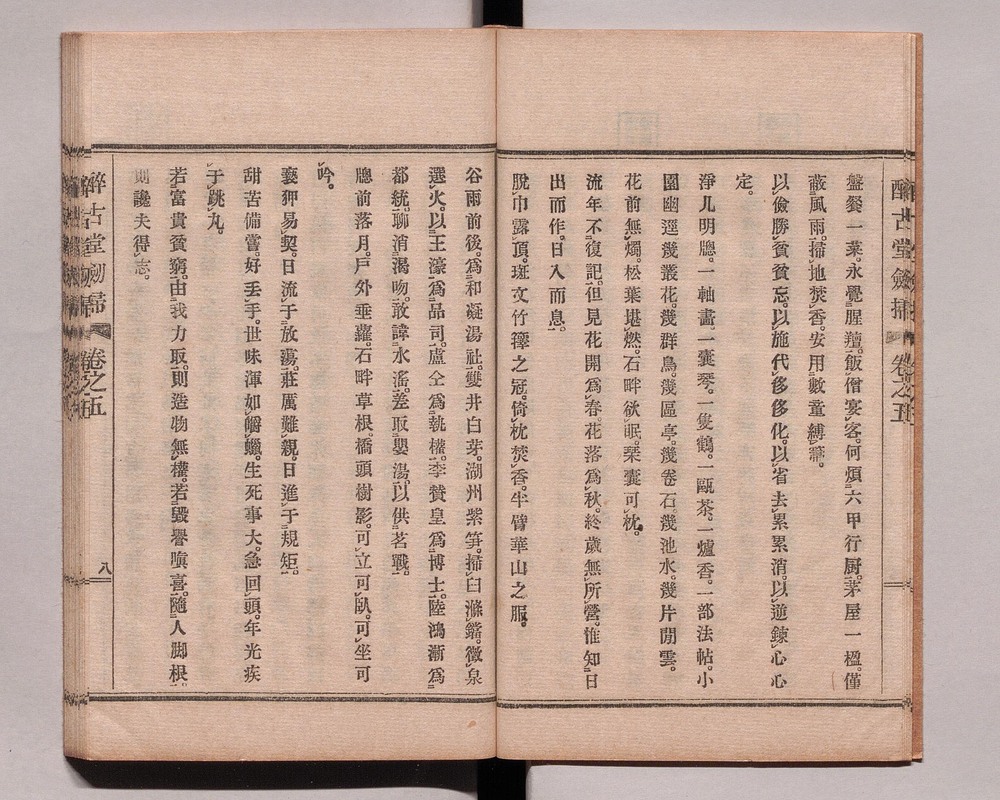 醉古堂劍掃 卷之五
盤餐一菜。永覺腥羶。飯僧宴客。何煩六甲行厨。茅屋一楹。僅
蔽風雨。掃地焚香。安用數童縛箒。
以儉勝貧貧忘。以施代侈侈化。以省去累累消。以逆鍊心心
定。
淨几明牕。一軸畫。一囊琴。一隻鶴。一甌茶。一爐香。一部法帖。小
園幽逕。幾叢花。幾群鳥。幾區亭。幾卷石。幾池水。幾片閒雲。
花前無燭。松葉堪燃。石畔欲眠。琹囊可枕。
流年不復記。但見花開爲春。花落爲秋。終歲無所營。惟知日
出而作。日入而息。
脫巾露頂。斑文竹籜之冠。倚枕焚香。半臂華山之服。
谷雨前後。爲和凝湯社。雙井白芽。湖州紫笋。掃臼滌鐺。徵泉
選火。以王濛爲品司。盧仝爲執權。李贊皇爲博士。陸鴻漸爲
都統。聊消渴吻。敢諱水滛。差取嬰湯。以供茗戰。
牕前落月。戶外垂蘿。石畔草根。橋頭樹影。可立可臥。可坐可
吟。
褻狎易契。日流于放蕩。莊厲難親。日進于規矩。
甜苦備嘗。好丟手。世味渾如嚼蠟。生死事大。急回頭。年光疾
于跳丸。
若富貴貧窮。由我力取。則造物無權。若毀譽嗔喜。隨人脚根。
則讒夫得志。
醉古堂劍掃 卷之五 八